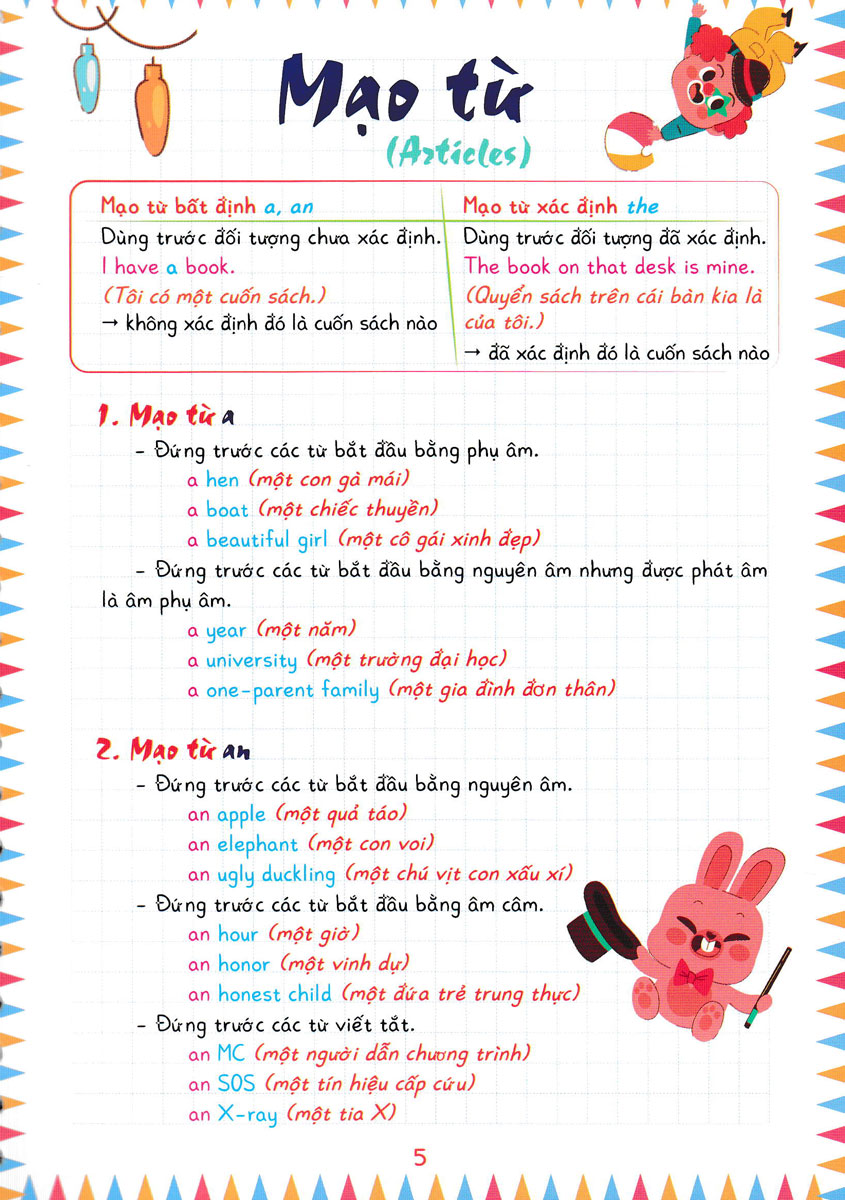 Mạo từ
(Articles)
Mạo từ bất định a, an
Dùng trước đối tượng chưa xác định.
I have a book.
(Tôi có một cuốn sách.)
→ không xác định đó là cuốn sách nào
Mạo từ xác định the
Dùng trước đối tượng đã xác định.
The book on that desk is mine.
(Quyển sách trên cái bàn kia là
của tôi.)
→ đã xác định đó là cuốn sách nào
1. Mạo từ a
- Đứng trước các từ bắt đầu bằng phụ âm.
a hen (một con gà mái)
a boat (một chiếc thuyền)
a beautiful girl (một cô gái xinh đẹp)
- Đứng trước các từ bắt đầu bằng nguyên âm nhưng được phát âm
là âm phụ âm.
a year (một năm)
a university (một trường đại học)
a one-parent family (một gia đình đơn thân)
2. Mạo từ an
- Đứng trước các từ bắt đầu bằng nguyên âm.
an apple (một quả táo)
an elephant (một con voi)
an ugly duckling (một chú vịt con xấu xí)
- Đứng trước các từ bắt đầu bằng âm câm.
an hour (một giờ)
an honor (một vinh dự)
an honest child (một đứa trẻ trung thực)
- Đứng trước các từ viết tắt.
an MC (một người dẫn chương trình)
an SOS (một tín hiệu cấp cứu)
an X-ray (một tia X)
5